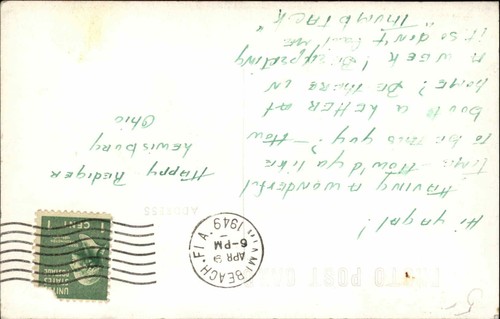 PHOTO POST CARD
ADDRESS
Hi ya gal!
Having a wonderful
time - How'd ya like
to be this guy? - How
bout a letter at
home? Be there in
a week! Be expecting
it so don't fail me
"THUMBTACK"
Happy Rediger
Lewisburg
Ohio
MIAMI BEACH, FLA.
APR 9
6-PM
1949
UNITED
STATES
POSTAGE
1 CENT 1